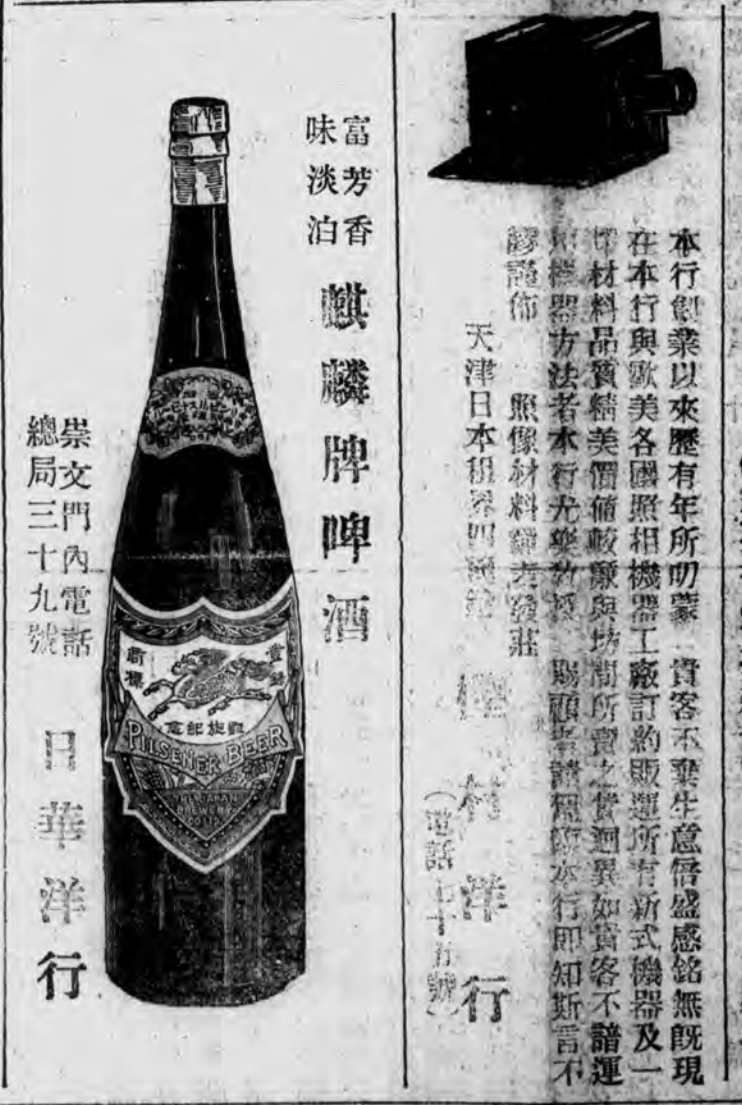 本行創業以來歷有年所叨蒙 貴客不棄生意倍盛感銘無既現
在本行與歐美各國照相機器工廠訂約販運所有新式機器及一
切材料品質精美價値較廉與坊間所賣之貨迥異如貴客不諳運
用機器方法者本行尤樂敎授 賜顧者請枉臨本行即知斯言不
謬謹佈
照像材料
發莊
天津日本租界四
村洋行
電話
十五號
富芳香
味淡泊
麒麟牌啤酒
PILSENER BEER
THE JAPAN
BREWERY
CO LTD
崇文門內電話
總局三十九號
日華洋行